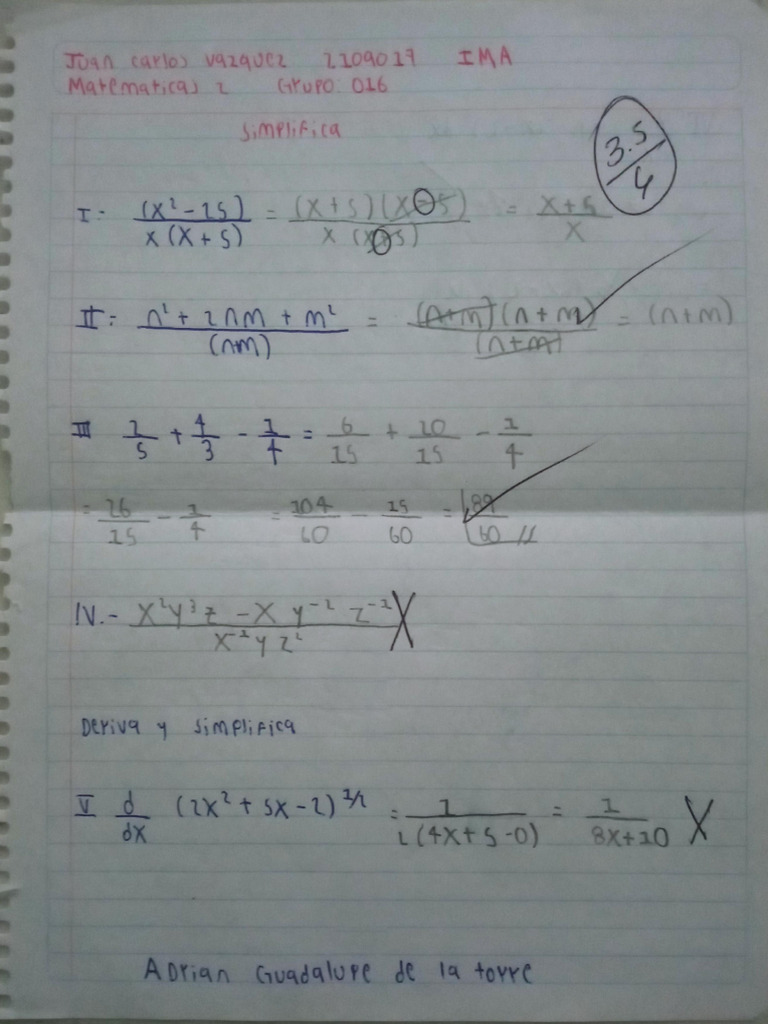 Juan carlos vazquez 2109017 IMA
Matematicas 2 Grupo: 016
Simplifica
3.5/4
I.- (x² - 25) / x(x + 5) = (x + 5)(x - 5) / x(x 5) = x + 5 / x
II.- n² + 2nm + m² / (nm) = (n+m)(n + m) / (n+m) = (n+m)
III 2/5 + 4/3 - 1/4 = 6/15 + 20/15 - 1/4
= 26/15 - 1/4 = 104/60 - 15/60 = 89/60 //
IV.- x²y³z - x y⁻² z⁻² / x⁻²yz² X
Deriva y simplifica
V d/dx (2x² + 5x - 2)^1/2 = 1 / 2(4x + 5 - 0) = 1 / 8x + 10 X
Adrian Guadalupe de la torre